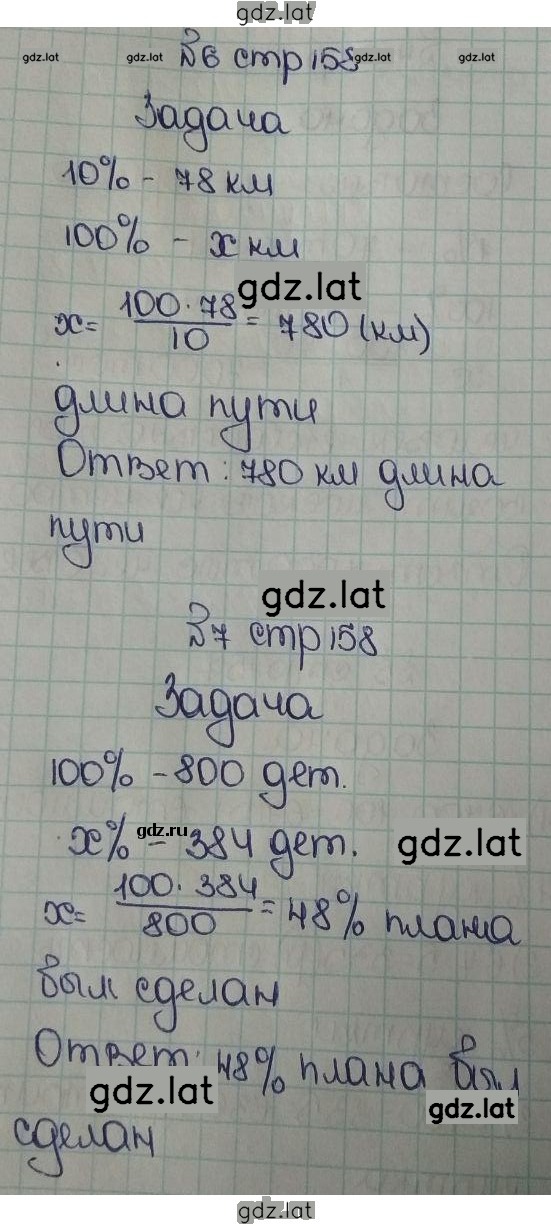 gdz.lat
gdz.lat gdz.lat №6 стр 158 gdz.lat gdz.lat
Задача
10% - 78 км
100% - x км
gdz.lat
x = 100 · 78 / 10 = 780 (км)
длина пути
Ответ: 780 км длина
пути
gdz.lat
№7 стр 158
Задача
100% - 800 дет.
x% - 384 дет.
gdz.ru gdz.lat
x = 100 · 384 / 800 = 48% плана
был сделан
Ответ: 48% плана был
gdz.lat gdz.lat
сделан
gdz.lat